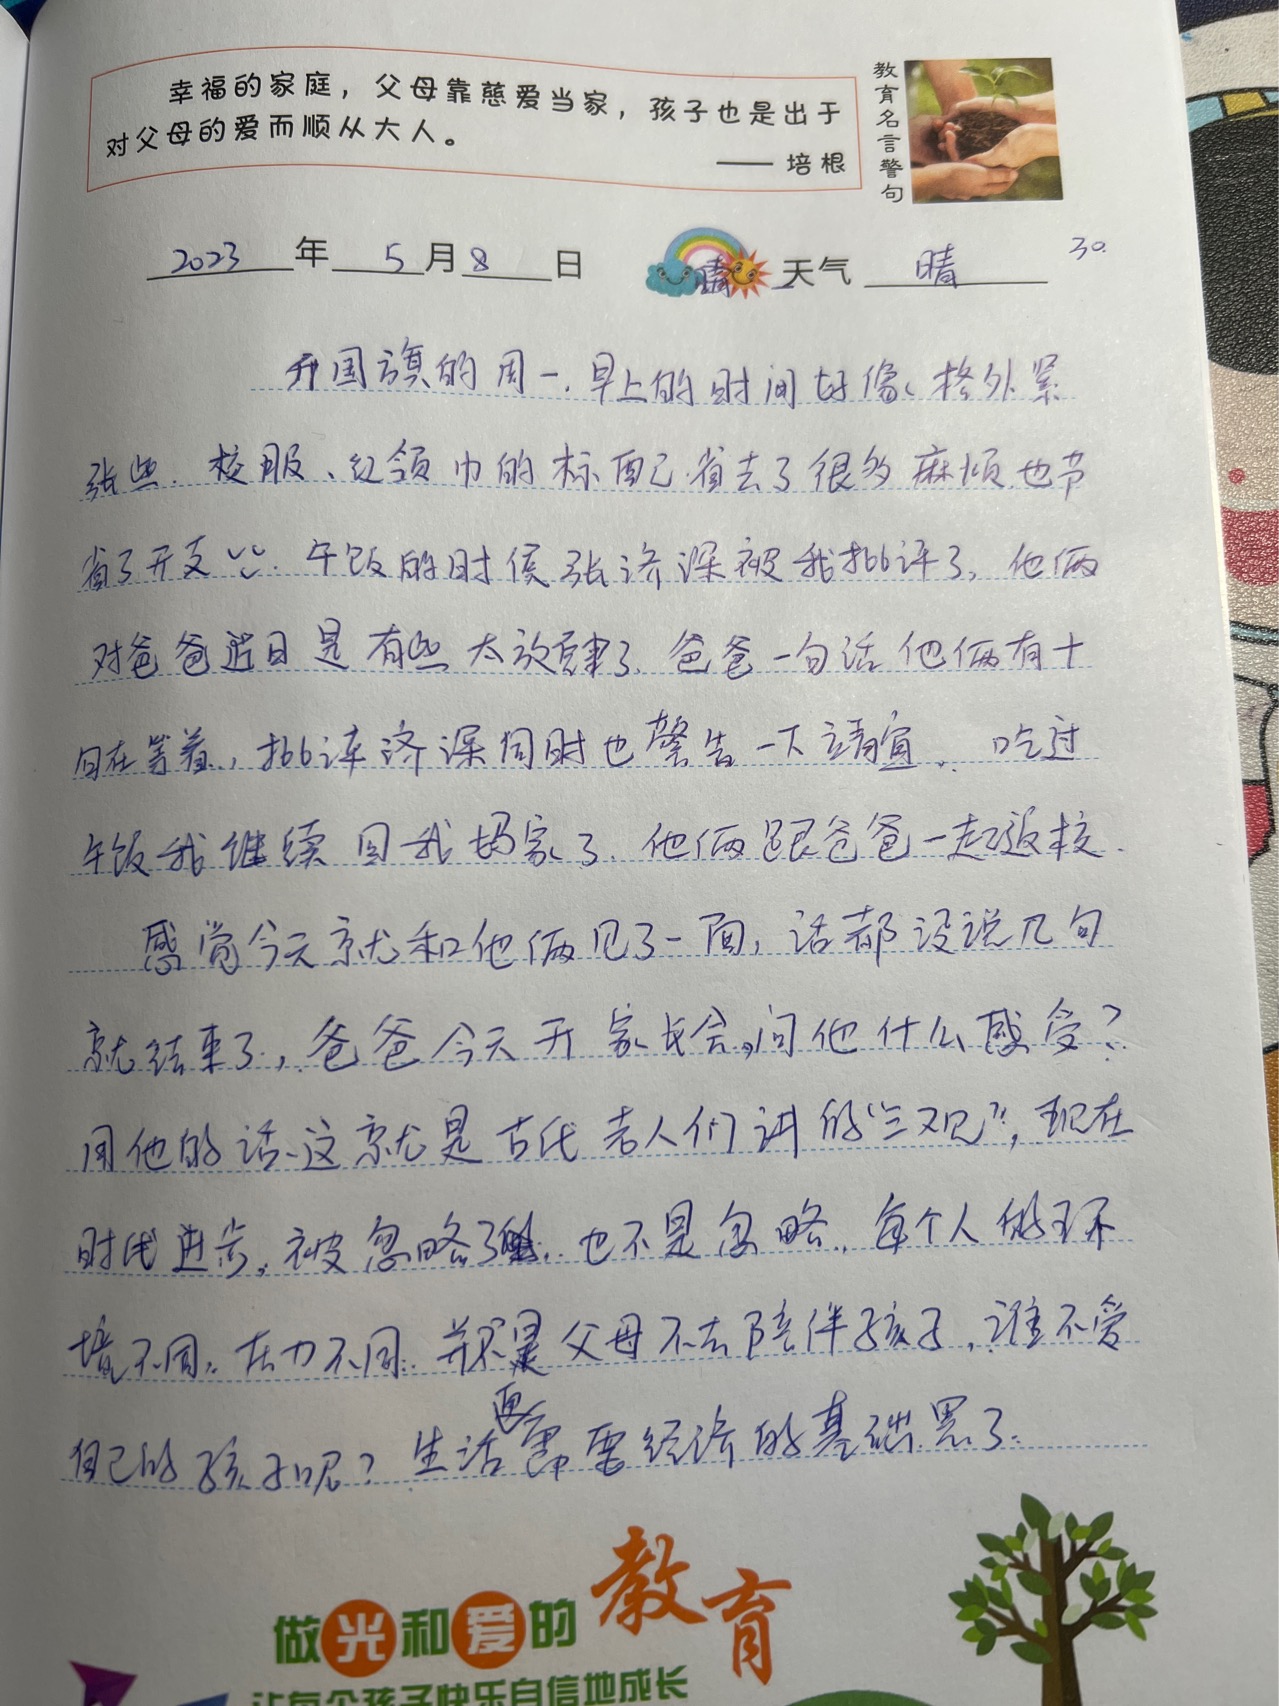 幸福的家庭，父母靠慈爱当家，孩子也是出于
对父母的爱而顺从大人。
—— 培根
教育名言警句
2023 年 5 月 8 日 晴 天气 晴
30.
升国旗的周一.早上的时间好像、格外紧
张些.校服、红领巾的标配.省去了很多麻烦.也节
省了开支.午饭的时候张济深被我批评了,他俩
对爸爸近日是有些太放肆了.爸爸一句话他俩有十
句在等着,批评济深同时也警告一下靖宜.吃过
午饭我继续回我妈家了.他俩跟爸爸一起返校.
感觉今天就和他俩见了一面,话都没说几句
就结束了,爸爸今天开家长会,问他什么感受?
用他的话、这就是古代老人们讲的“三观”,现在
时代进步,被忽略了.也不是忽略,每个人的环
境不同,压力不同.并不是父母不去陪伴孩子,谁不爱
自己的孩子呢?生活更需要经济的基础.累了.
做光和爱的教育
让每个孩子快乐自信地成长